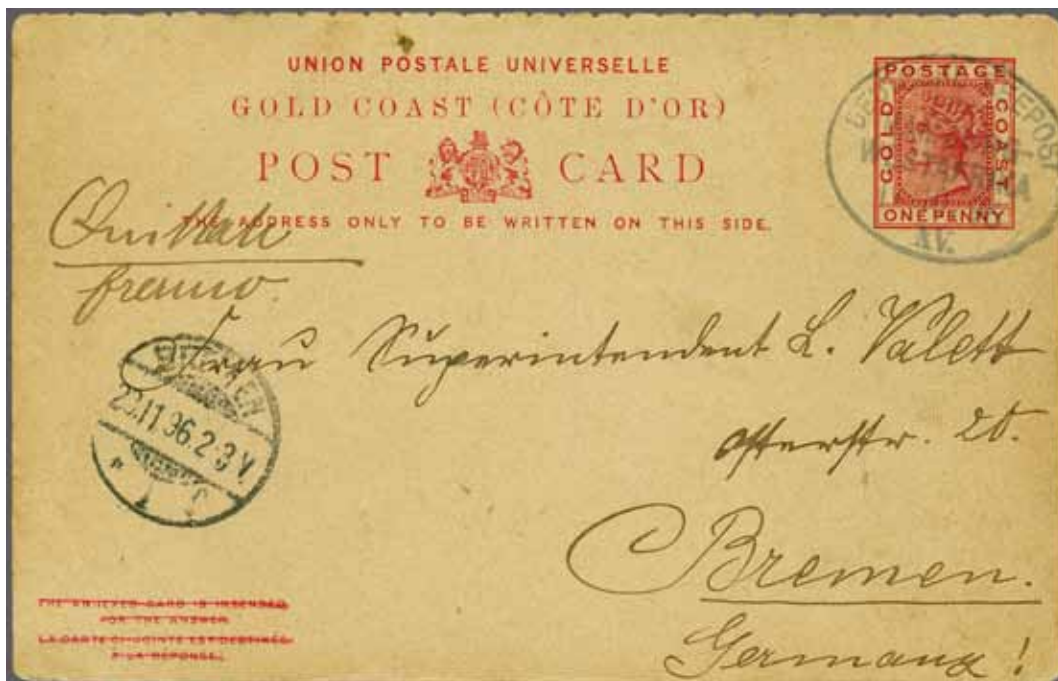 UNION POSTALE UNIVERSELLE
GOLD COAST (CÔTE D'OR)
POST CARD
THE ADDRESS ONLY TO BE WRITTEN ON THIS SIDE.
POSTAGE
GOLD
COAST
ONE PENNY
XV.
Quittah
Frau Superintendent L. Valett
Osterstr. 20.
BREMEN
11.96.2-3V
Bremen.
Germany!
THE ANNEXED CARD IS INTENDED
FOR THE ANSWER.
LA CARTE CI-JOINTE EST DESTINÉE
À LA RÉPONSE.